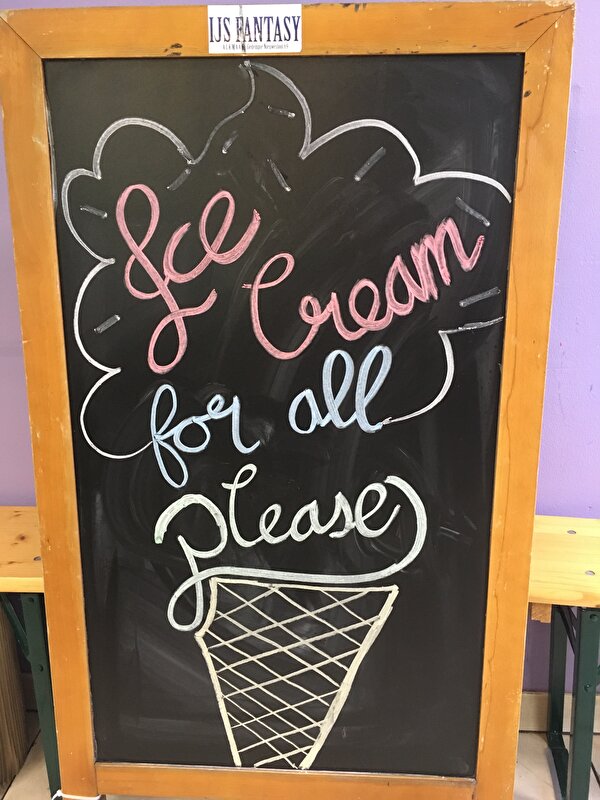 IJS FANTASY
Ice
Cream
for all
please